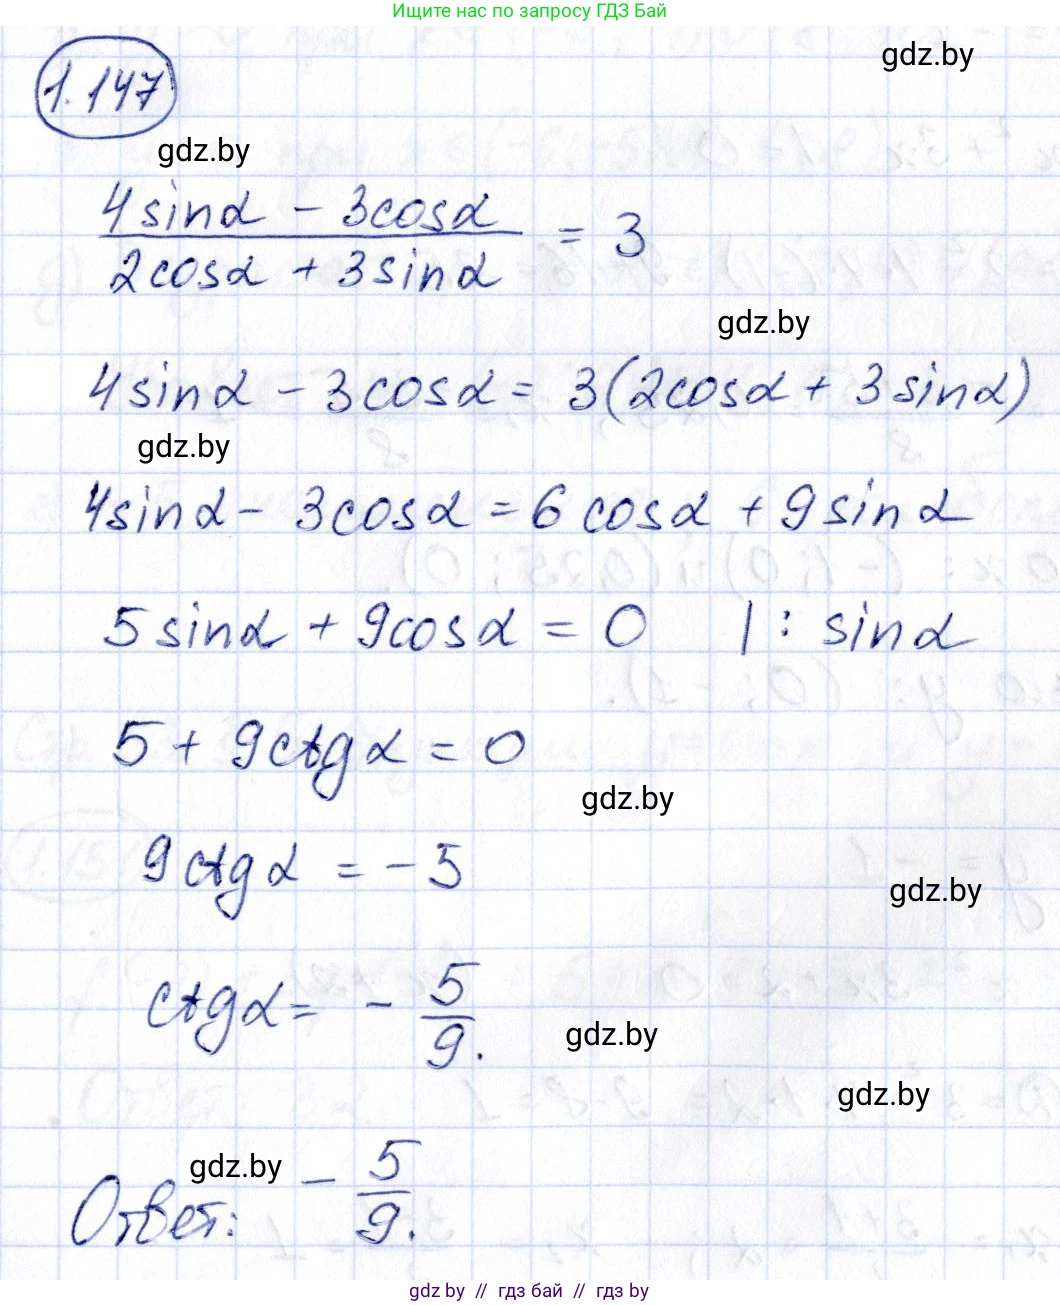 Ищите нас по запросу ГДЗ Бай
gdz.by
1.147
gdz.by
4sinα - 3cosα / 2cosα + 3sinα = 3
gdz.by
4sinα - 3cosα = 3(2cosα + 3sinα)
gdz.by
4sinα - 3cosα = 6cosα + 9sinα
5sinα + 9cosα = 0 | : sinα
5 + 9ctgα = 0
gdz.by
9ctgα = -5
gdz.by
ctgα = - 5/9.
gdz.by
gdz.by
gdz.by
Ответ: - 5/9.
gdz.by // гдз бай // гдз by